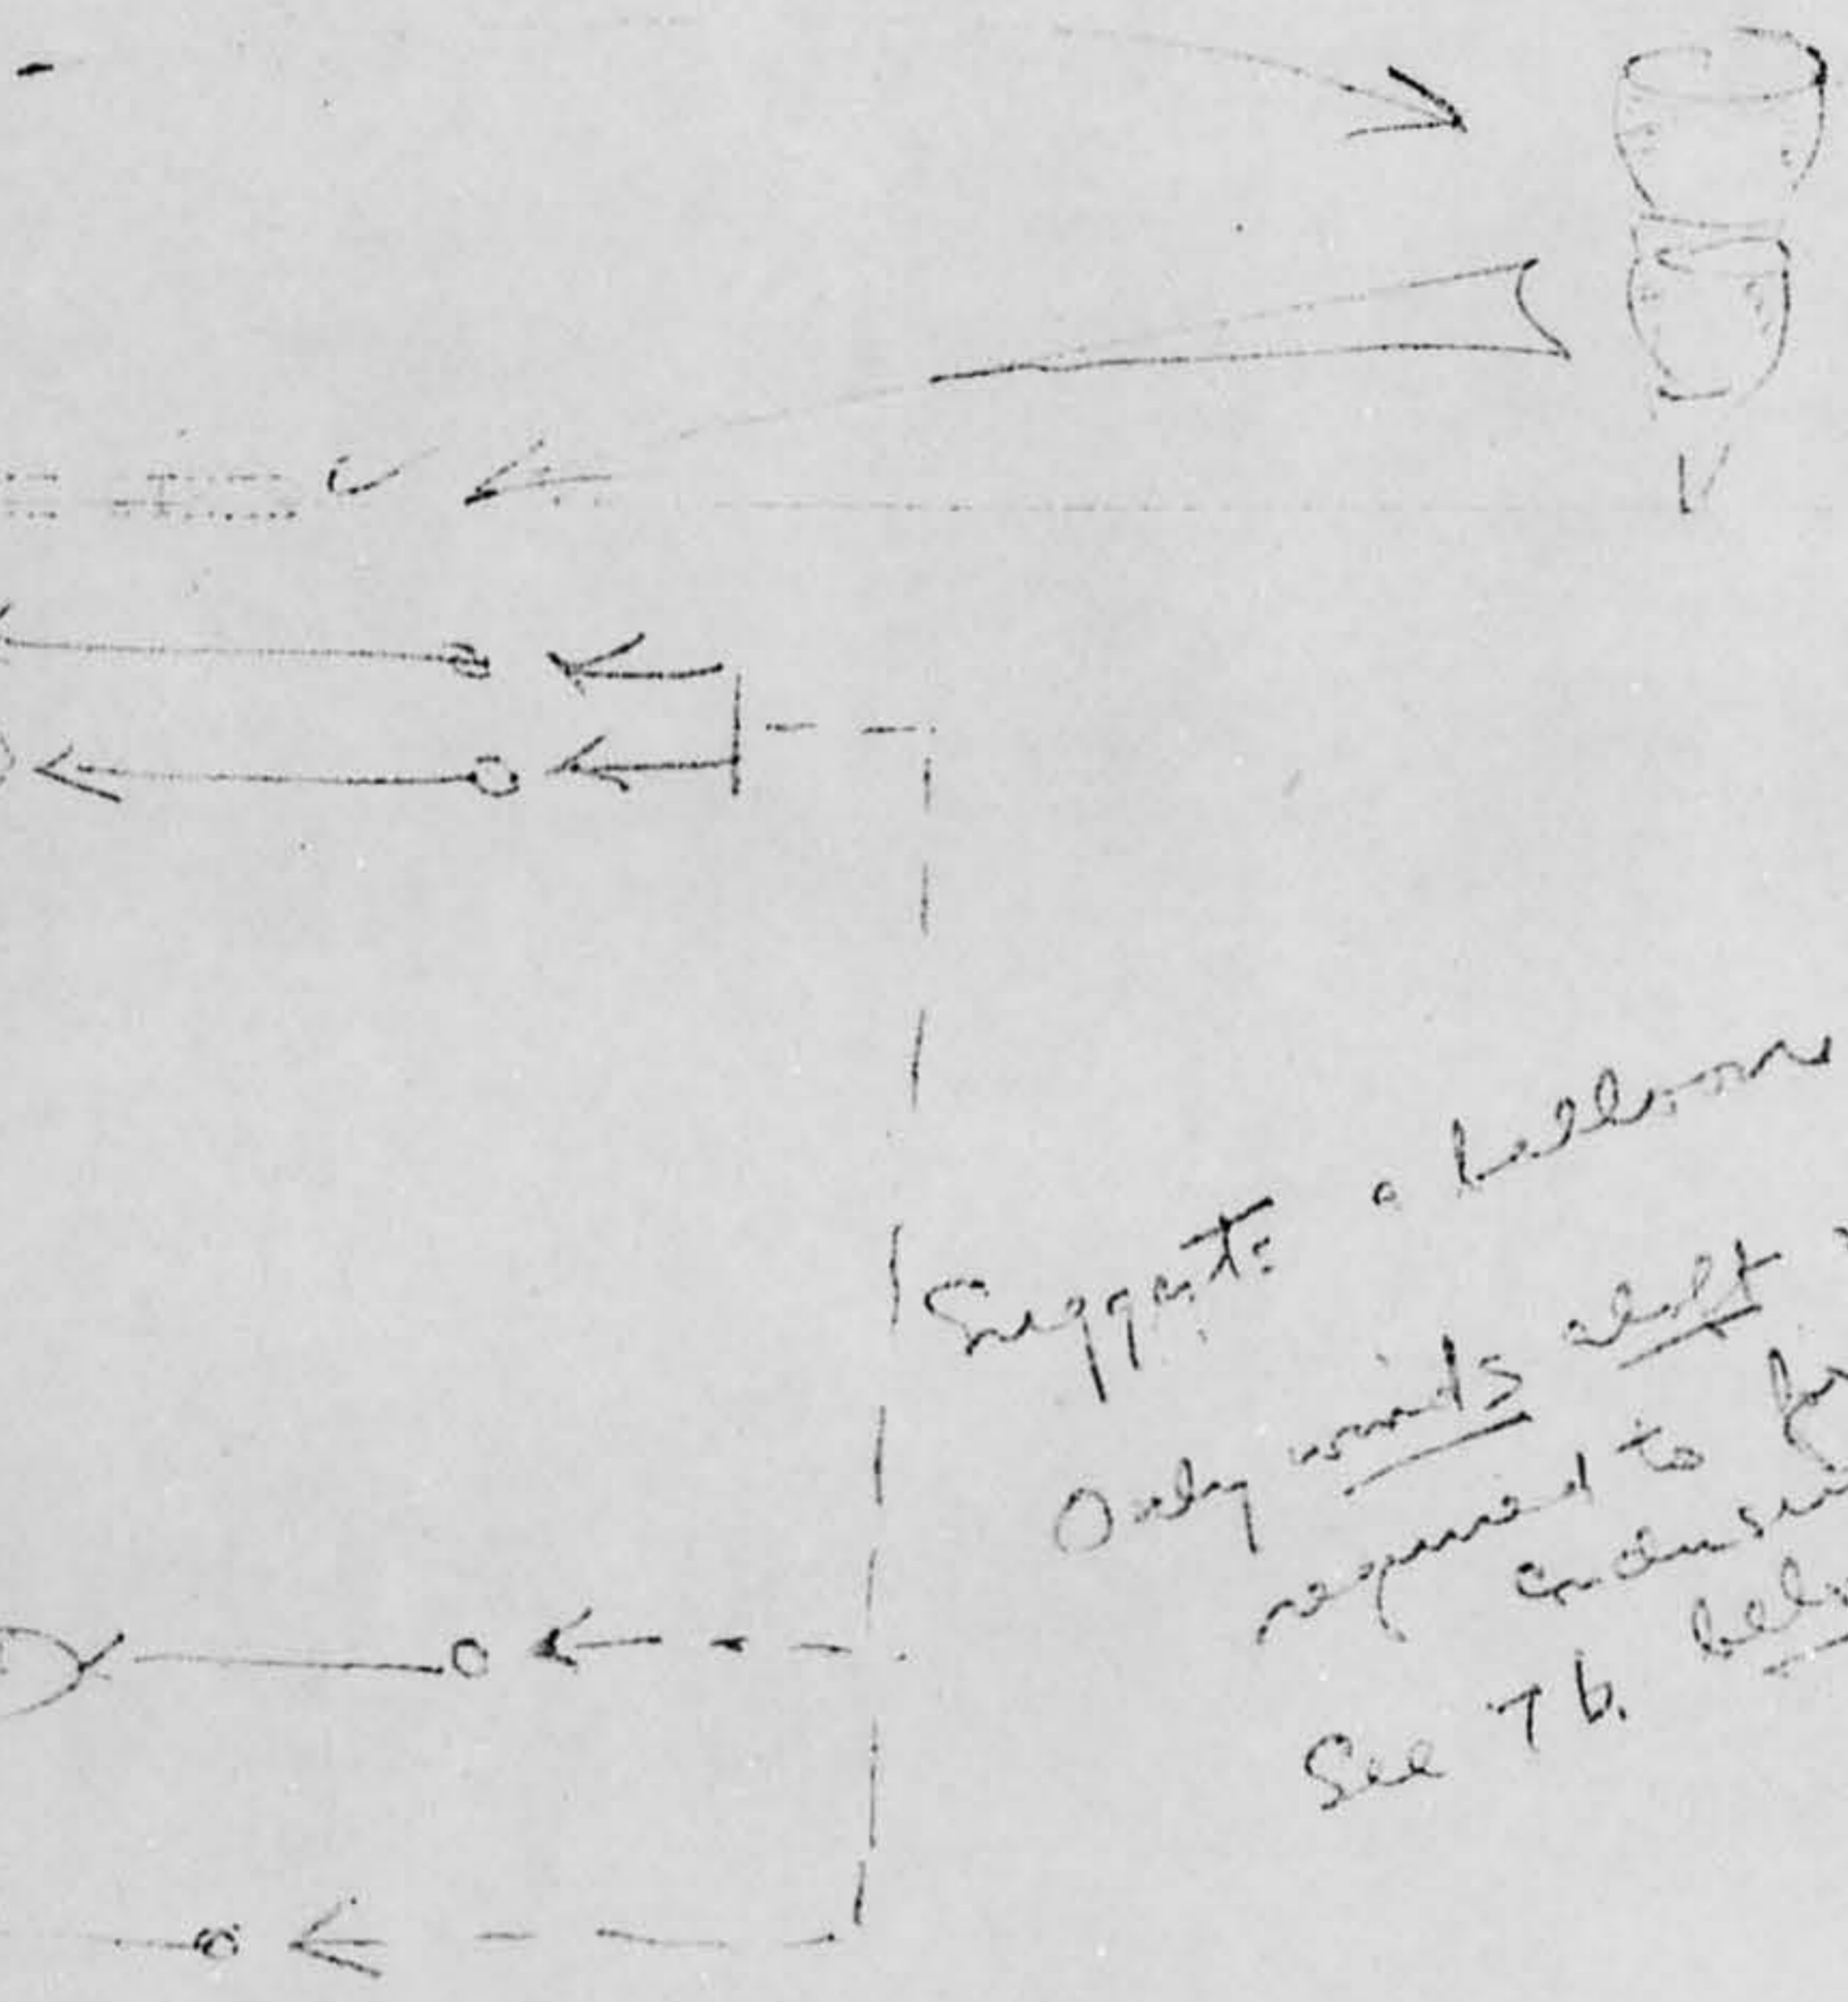 Suggests a balloon
Only winds aloft
required to
See 7 b. below